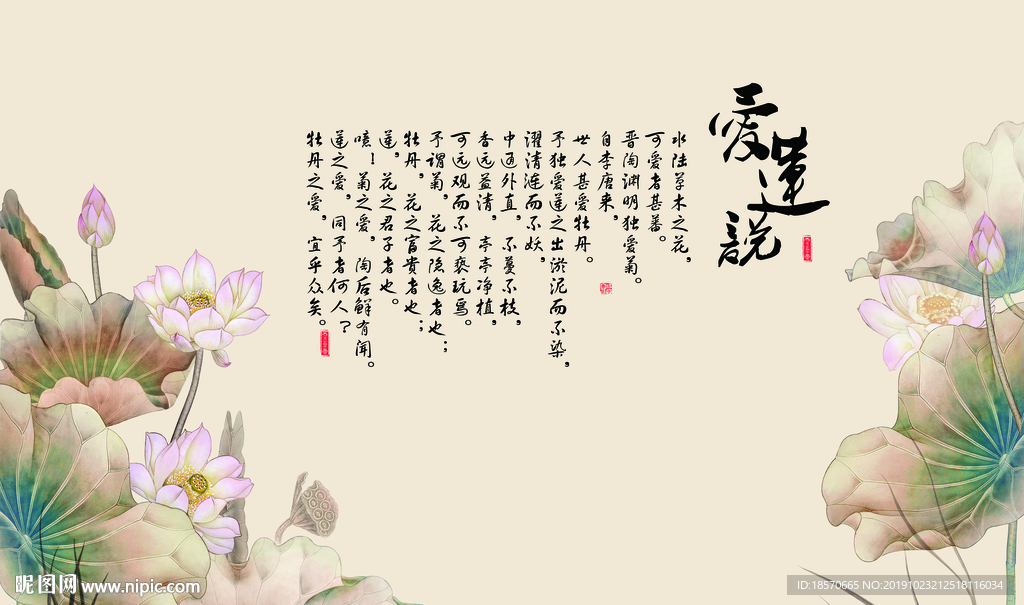 愛蓮説
水陆草木之花，
可爱者甚蕃。
晋陶渊明独爱菊。
自李唐来，
世人甚爱牡丹。
予独爱莲之出淤泥而不染，
濯清涟而不妖，
中通外直，不蔓不枝，
香远益清，亭亭净植，
可远观而不可亵玩焉。
予谓菊，花之隐逸者也；
牡丹，花之富贵者也；
莲，花之君子者也。
噫！菊之爱，陶后鲜有闻。
莲之爱，同予者何人？
牡丹之爱，宜乎众矣。
昵图网 www.nipic.com
ID:18570665 NO:20191023212518116034